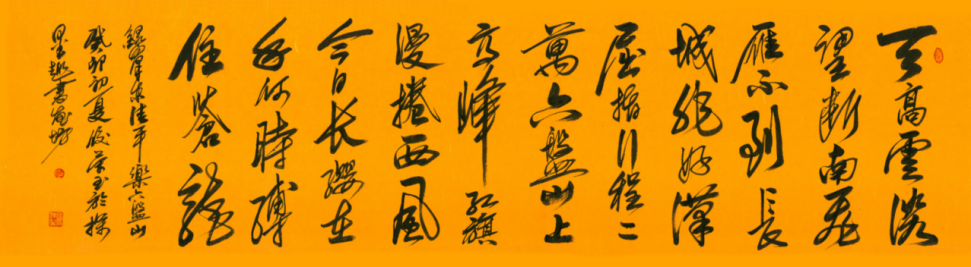 天高雲淡
望断南飛
雁不到長
城非好漢
屈指行程二
萬六盤山上
高峰紅旗
漫捲西風
今日長纓在
手何時縛
住蒼龍
平樂六盤山
癸卯初夏
墨趣書